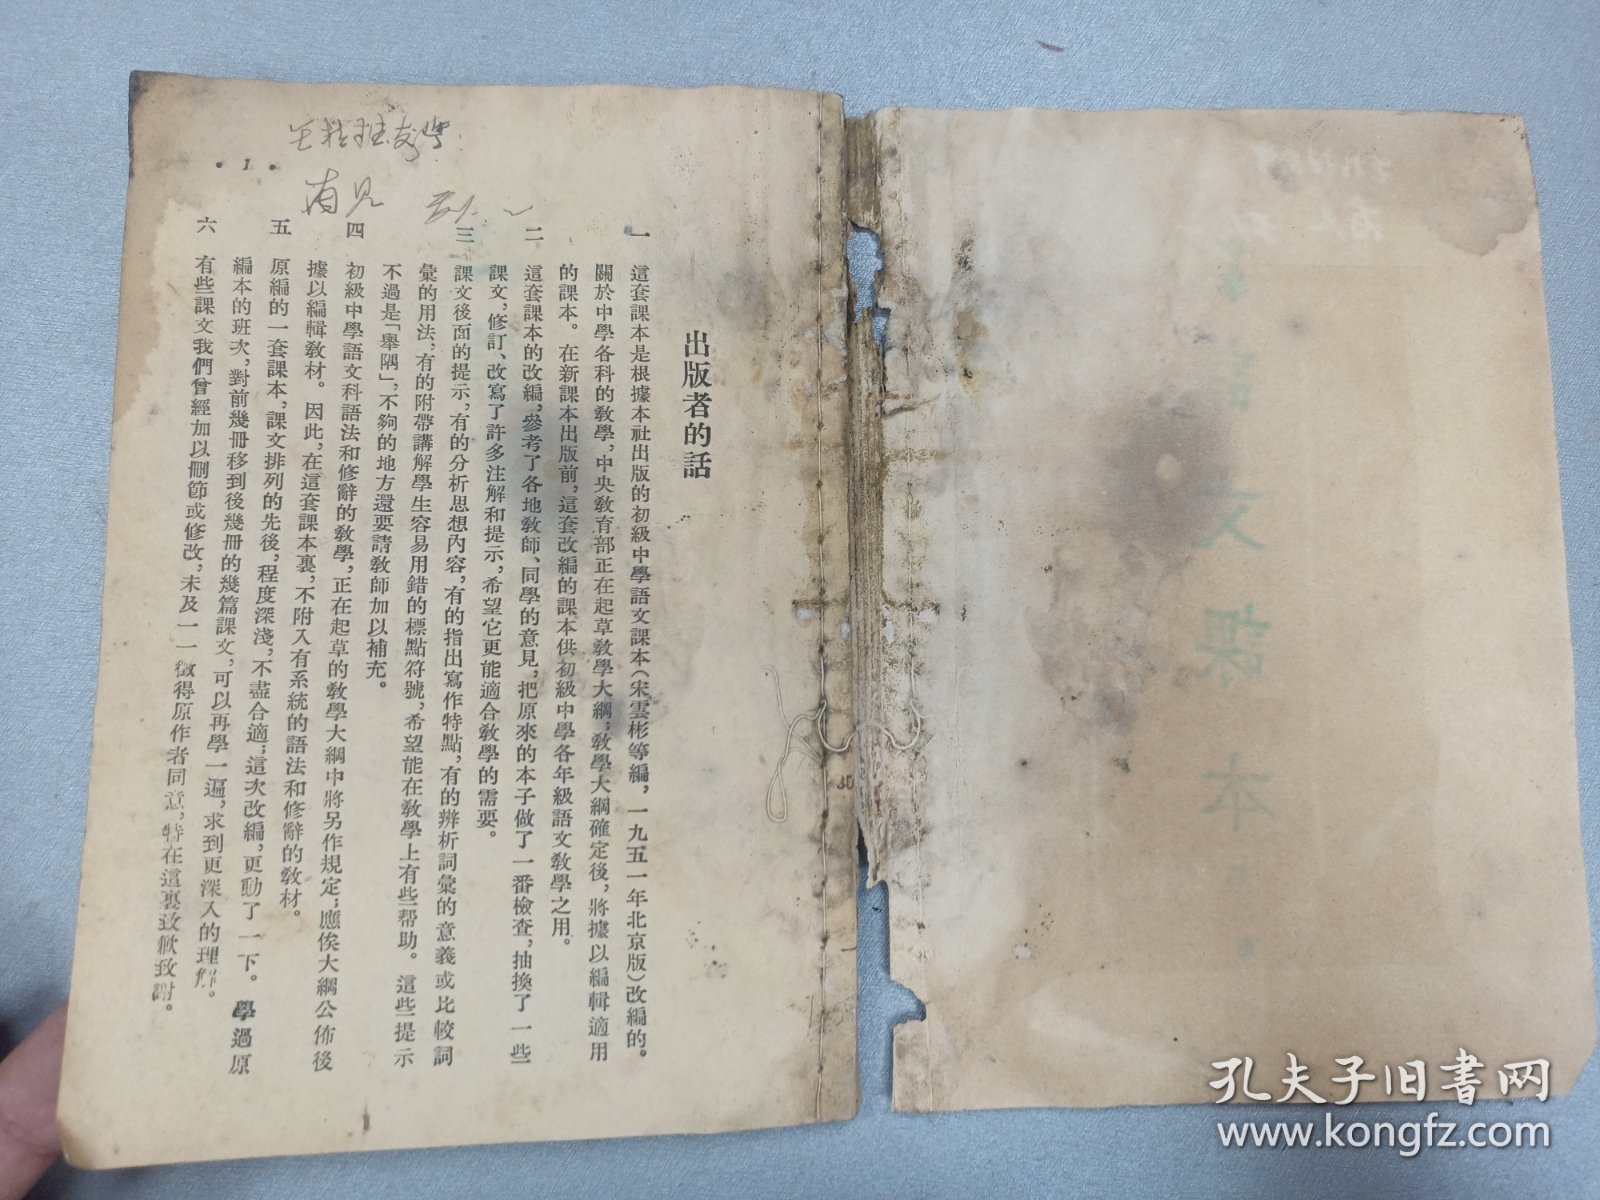 出版者的話
一　這套課本是根據本社出版的初級中學語文課本（宋雲彬等編，一九五一年北京版）改編的。
關於中學各科的敎學，中央敎育部正在起草敎學大綱；敎學大綱確定後，將據以編輯適用
的課本。在新課本出版前，這套改編的課本供初級中學各年級語文敎學之用。
二　這套課本的改編，參考了各地敎師、同學的意見，把原來的本子做了一番檢查，抽換了一些
課文，修訂、改寫了許多注解和提示，希望它更能適合敎學的需要。
三　課文後面的提示，有的分析思想內容，有的指出寫作特點，有的辨析詞彙的意義或比較詞
彙的用法，有的附帶講解學生容易用錯的標點符號，希望能在敎學上有些帮助。這些提示
不過是「舉隅」，不夠的地方還要請敎師加以補充。
四　初級中學語文科語法和修辭的敎學，正在起草的敎學大綱中將另作規定；應俟大綱公佈後
據以編輯敎材。因此，在這套課本裏，不附入有系統的語法和修辭的敎材。
五　原編的一套課本，課文排列的先後，程度深淺，不盡合適；這次改編，更動了一下。學過原
編本的班次，對前幾冊移到後幾冊的幾篇課文，可以再學一遍，求到更深入的理解。
六　有些課文我們曾經加以刪節或修改，未及一一徵得原作者同意，特在這裏致歉致謝。
· 1 ·
文課本
30
孔夫子旧書网
www.kongfz.com